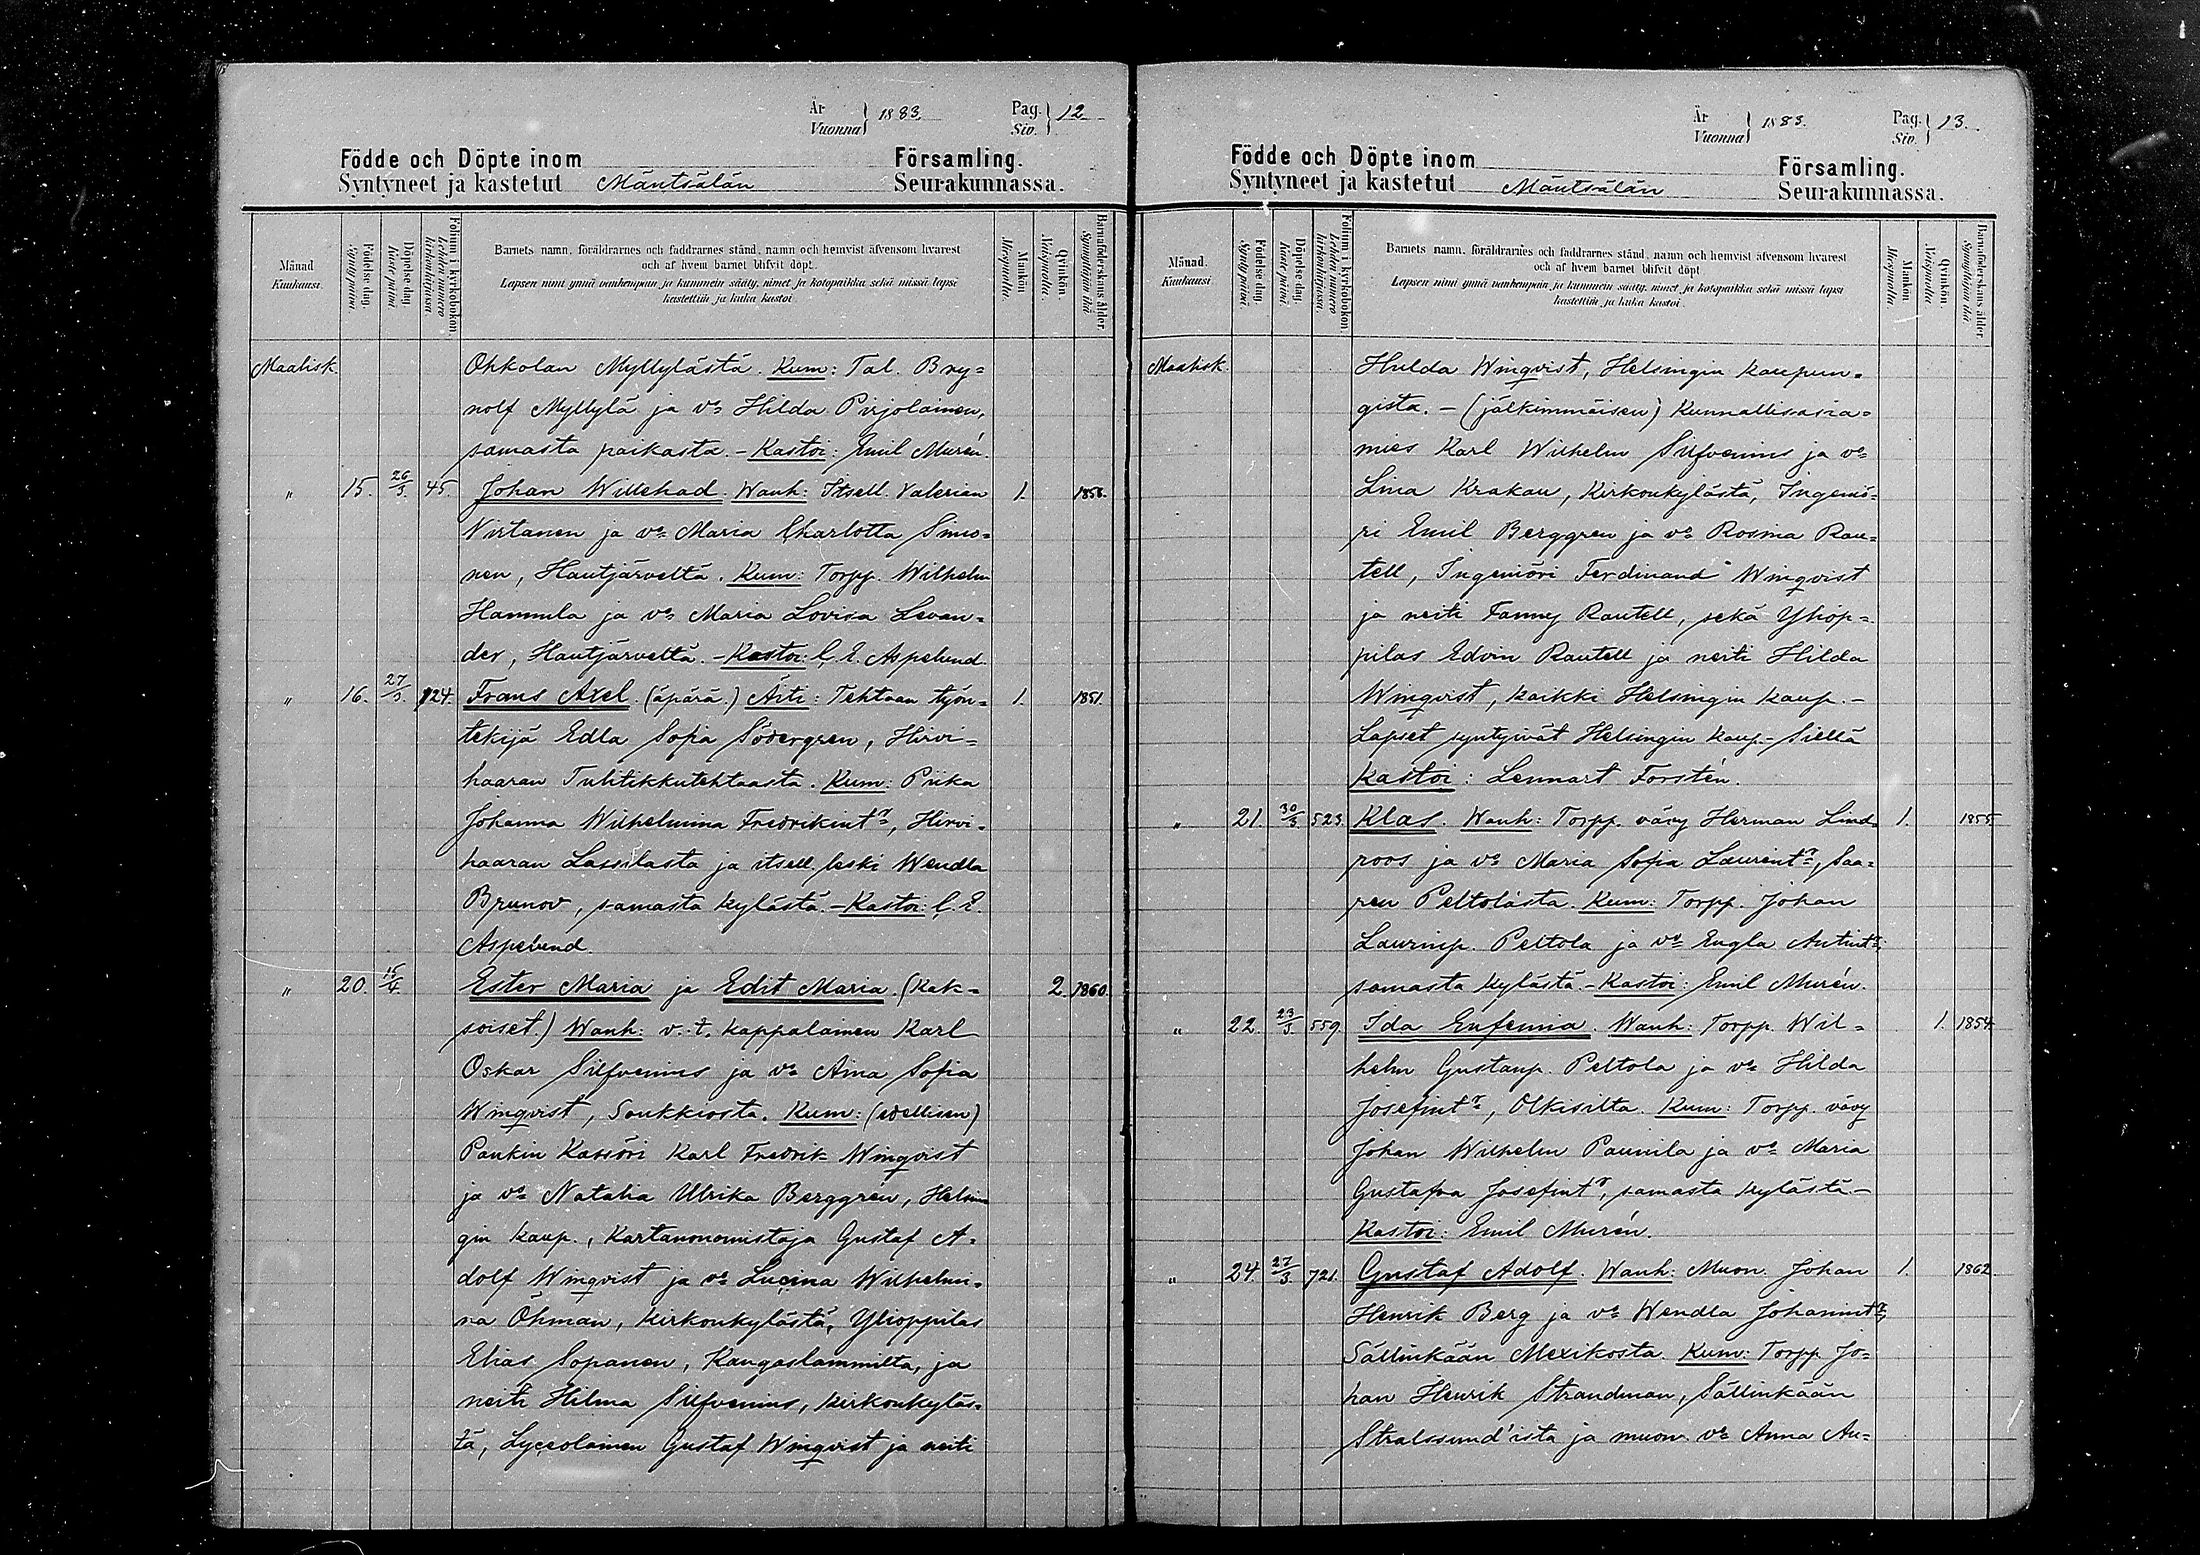 År
Vuonna } 1883.
Pag.
Siv. } 12
Födde och Döpte inom Församling.
Syntyneet ja kastetut Mäntsälän Seurakunnassa.
Månad.
Kuukausi.
Födelsedag.
Syntypäivä.
Döpelsedag.
Kastepäivä.
Folium i kyrkoboken.
Lehden numero kirkonkirjassa.
Barnets namn, föräldrarnes och faddrarnes stånd, namn och hemvist äfvensom hvarest
och af hvem barnet blifvit döpt.
Lapsen nimi ynnä vanhempain ja kummein sääty, nimet ja kotopaikka sekä missä lapsi
kastettiin ja kuka kastoi.
Mankön.
Miespuolta.
Qvinkön.
Naispuolta.
Barnaföderskans ålder.
Synnyttäjän ikä.
Maalisk. Ohkolan Myllylästä. Kum: Tal. Bry=
nolf Myllylä ja vo Hilda Pirjolainen,
samasta paikasta. - Kastoi: Emil Murén.
" 15. 26/3. 45. Johan Willehad. Wanh: Itsell. Valerian 1. 1858.
Virtanen ja vo Maria Charlotta Simo=
nen, Hautjärveltä. Kum: Torpp. Wilhelm
Hannula ja vo Maria Lovisa Levan=
der, Hautjärveltä. - Kastoi: C. E. Aspelund.
" 16. 27/3. 724. Frans Axel. (äpärä.) Äiti: Tehtaan työn= 1. 1851.
tekijä Edla Sofia Södergren, Hirvi=
haaran Tulitikkutehtaasta. Kum: Piika
Johanna Wilhelmina Fredrikintr, Hirvi=
haaran Lassilasta ja itsell. leski Wendla
Brunov, samasta kylästä. - Kastoi: C. E.
Aspelund.
" 20. 15/4. Ester Maria ja Edit Maria. (kak= 2. 1860.
soiset.) Wanh: v. t. kappalainen Karl
Oskar Silfvenius ja vo Aina Sofia
Winqvist, Soukkiosta. Kum: (edellisen)
Pankin Kasöri Karl Fredrik Winqvist
ja vo Natalia Ulrika Berggrén, Helsin
gin kaup., Kartanonomistaja Gustaf A=
dolf Winqvist ja vo Lucina Wilhelmi=
na Öhman, Kirkonkylästä, Ylioppilas
Elias Sopanen, Kangaslammilta, ja
neiti Hilma Silfvenius, kirkonkyläs=
tä, Lyceolainen Gustaf Winqvist ja neiti
År
Vuonna } 1883.
Pag.
Siv. } 13.
Födde och Döpte inom Församling.
Syntyneet ja kastetut Mäntsälän Seurakunnassa.
Månad.
Kuukausi.
Födelsedag.
Syntypäivä.
Döpelsedag.
Kastepäivä.
Folium i kyrkoboken.
Lehden numero kirkonkirjassa.
Barnets namn, föräldrarnes och faddrarnes stånd, namn och hemvist äfvensom hvarest
och af hvem barnet blifvit döpt.
Lapsen nimi ynnä vanhempain ja kummein sääty, nimet ja kotopaikka sekä missä lapsi
kastettiin ja kuka kastoi.
Mankön.
Miespuolta.
Qvinkön.
Naispuolta.
Barnaföderskans ålder.
Synnyttäjän ikä.
Maalisk. Hulda Winqvist, Helsingin kaupun=
gista. - (jälkimmäisen) Kunnallisasia=
mies Karl Wilhelm Silfvenius ja vo
Lina Krakau, Kirkonkylästä, Ingeniö=
ri Emil Berggren ja vo Rosina Rau=
tell, Ingeniöri Ferdinand Winqvist
ja neiti Fanny Rautell, sekä Yliop=
pilas Edvin Rautell ja neiti Hilda
Winqvist, kaikki Helsingin kaup. -
Lapset syntyivät Helsingin kaup. - Siellä
kastoi: Lennart Forstén.
" 21. 30/3 523. Klas. Wanh: Torpp. vävy Herman Lind= 1. 1855
roos ja vo Maria Sofia Laurintr, Saa=
ren Peltolasta. Kum: Torpp. Johan
Laurinp. Peltola ja vo Engla Antintr,
samasta kylästä. - Kastoi: Emil Murén.
" 22. 23/3 559. Ida Eufemia. Wanh: Torpp. Wil= 1. 1854.
helm Gustanp. Peltola ja vo Hilda
Josefintr, Olkisilta. Kum: Torpp. vävy
Johan Wilhelm Paunila ja vo Maria
Gustafva Josefintr, samasta kylästä -
Kastoi: Emil Murén.
" 24. 27/3 721. Gustaf Adolf. Wanh: Muon. Johan 1. 1862.
Henrik Berg ja vo Wendla Johanintr,
Sällinkään Mexikosta. Kum: Torpp. Jo=
han Henrik Strandman, Sällinkään
Stralssund'ista ja muon. vo Anna Au=